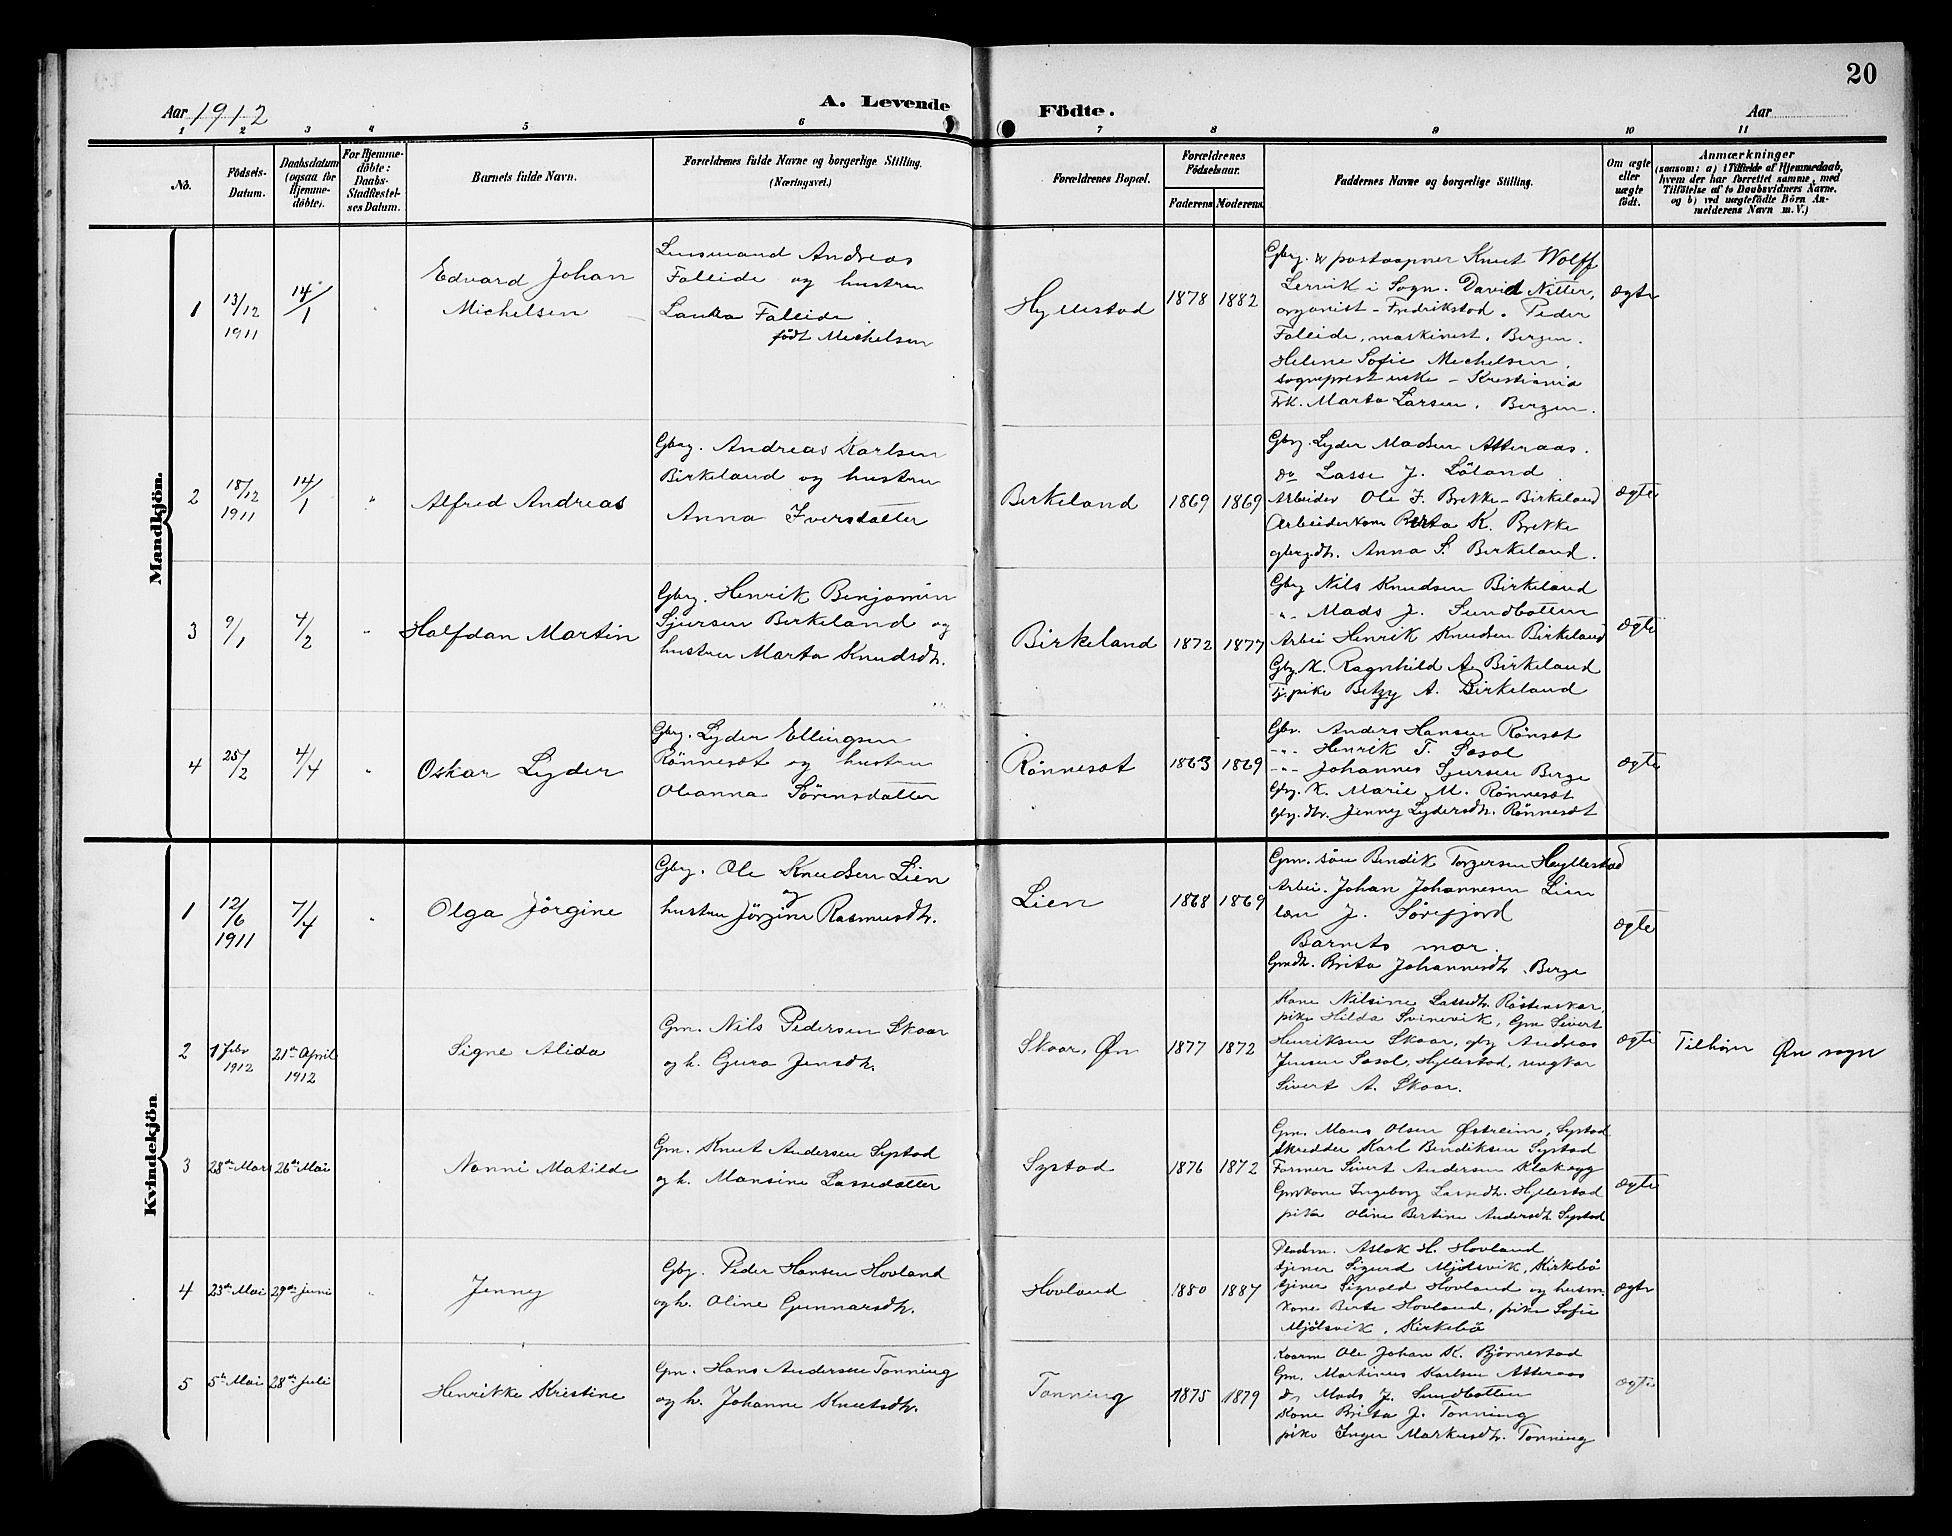 20
Aar 1912
A. Levende Födte.
Aar
1 2 3 4 5 6 7 8 9 10 11
No.
Födsels-
Datum.
Daabsdatum
(ogsaa for
Hjemme-
döbte).
For Hjemme-
döbte:
Daabs-
Stadfæstel-
ses Datum.
Barnets fulde Navn.
Forældrenes fulde Navne og borgerlige Stilling.
(Næringsvei.)
Forældrenes Bopæl.
Forældrenes
Födselsaar.
Faderens.
Moderens.
Faddernes Navne og borgerlige Stilling.
Om ægte
eller
uægte
födt.
Anmærkninger
(saasom: a) i Tilfælde af Hjemmedaab,
hvem der har forrettet samme, med
Tilföielse af to Daabsvidners Navne,
og b) ved uægtefödte Börn An-
melderens Navn m. V.)
Mandkjön.
1
13/12
1911
14/1
"
Edvard Johan
Michelsen
Lensmand Andreas
Faleide og hustru
Laura Faleide
födt Michelsen
Hyllestad
1878
1882
Gbrg. & postaapner Knut Wolff
Lervik i Sogn. David Nitter,
organist - Fredrikstad. Peder
Faleide, maskinist, Bergen.
Helene Sofie Michelsen,
sogneprest enke - Kristiania
Frk. Marta Larsen, Bergen.
ægte
2
18/12
1911
14/1
"
Alfred Andreas
Gbrg. Andreas Karlsen
Birkeland og hustru
Anna Iversdatter
Birkeland
1869
1869
Gbrg. Lyder Madsen Atteraas.
do Lasse J. Löland
Arbeider Ole J. Brekke - Birkeland
Arbeiderkone Berta K. Brekke
gbrg.dtr. Anna S. Birkeland.
ægte
3
9/1
4/2
"
Halfdan Martin
Gbrg. Henrik Benjamin
Sjursen Birkeland og
hustru Marta Knudsdtr.
Birkeland
1872
1877
Gbrg Nils Knudsen Birkeland
-"- Mads J. Sundbotten
Arbei Henrik Knudsen Birkeland
Gbg.K. Ragnhild A. Birkeland
Tj.pike Betzy A. Birkeland
ægte
4
25/2
4/4
"
Oskar Lyder
Gbrg. Lyder Ellingsen
Rönnesæt og hustru
Oleanna Sörensdatter
Rönnesæt
1863
1869
Gbr. Anders Hansen Rönsæt
-"- Henrik T. Sæsol
-"- Johannes Sjursen Berge
Gbg. K. Marie M. Rönnesæt
Gbg. dtr. Jenny Lydersdtr. Rönnesæt
ægte
Kvindekjön
1
12/6
1911
7/4
"
Olga Jörgine
Gbrg. Ole Knudsen Lien
og
hustru Jörgine Rasmusdtr.
Lien
1868
1869
Gm. sön Bendik Torgersen Hyllestad
Arbei. Johan Johannesen Lien
J. Sörefjord
Barnets mor.
Gmdtr. Brita Johannesdtr. Berge
ægte
2
1 Febr
1912
21de April
1912
Signe Alida
Gm. Nils Pedersen Skaar
og h. Guro Jensdtr.
Skaar, Øn
1877
1872
Kone Nilsine Lassedtr.
pike Hilda Svinevik, Gm Sivert
Henriksen Skaar, gbg Andreas
Jensen Sæsol, Hyllestad, ungkar
Sivert A. Skaar.
ægte
Tilhörer Øn sogn
3
28de Mars
26de Mai
Nanni Matilde
Gm. Knut Andersen Systad
og h. Mansine Lassedatter
Systad
1876
1872
Gm. Mons Olsen Østreim, Systad
skredder Karl Bendiksen Systad
Farmer Sivert Andersen Klakegg
Gmkone Ingeborg Lassedtr. Hyllestad
pike Oline Bertine Andersdtr Systad
ægte
4
23de Mai
29de Juni
"
Jenny
Gbg. Peder Hansen Hovland
og h. Oline Gunnarsdtr.
Hovland
1880
1887
Pladsm. Aslak H. Hovland
tjener Sigurd Mjölsvik, Kirkebö
tjener Sigvald Hovland og husm.
kone Berte Hovland, pike Sofie
Mjölsvik, Kirkebö
ægte
5
5te Mai
28de Juli
Henrikke Kristine
Gm. Hans Andersen Tonning
og h. Johanne Knutsdtr.
Tonning
1875
1879
Kaarm Ole Johan K. Bjørnestad
Gm. Martinus Karlsen Atteraas
do Mads J. Sundbotten
Kone Brita J. Tonning
pike Inger Markusdtr. Tonning
ægte